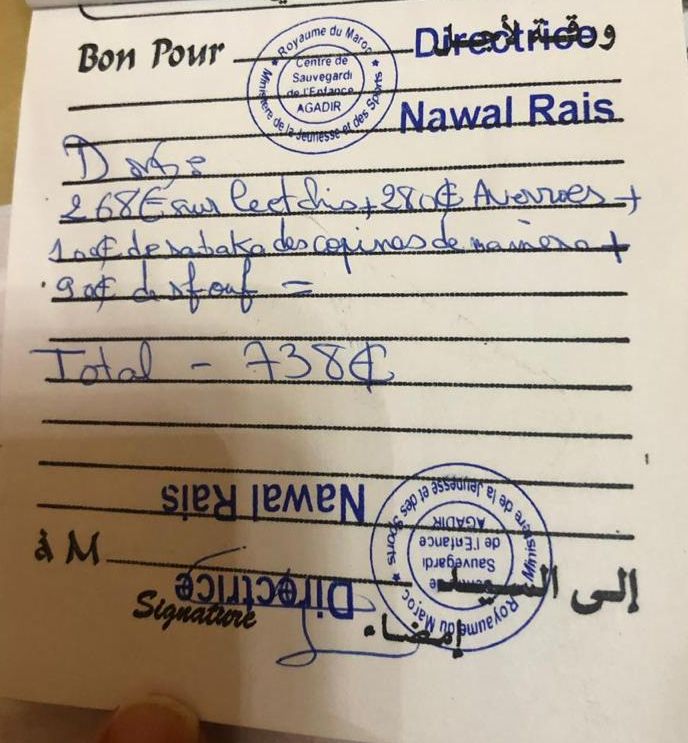 Bon Pour Directrice
Royaume du Maroc
Centre de
Sauvegardi
de l'Enfance
AGADIR
Ministère de la Jeunesse et des Sports
Nawal Rais
Dons:
268€ sur leetchi + 280€ Averroes +
100€ de sabaka des copines de +
90€ de sfouf =
Total - 738€
Nawal Rais
Directrice
Royaume du Maroc
Sauvegardi
de l'Enfance
AGADIR
Ministère de la Jeunesse et des Sports
à M إلى السيد
Signature إمضاء